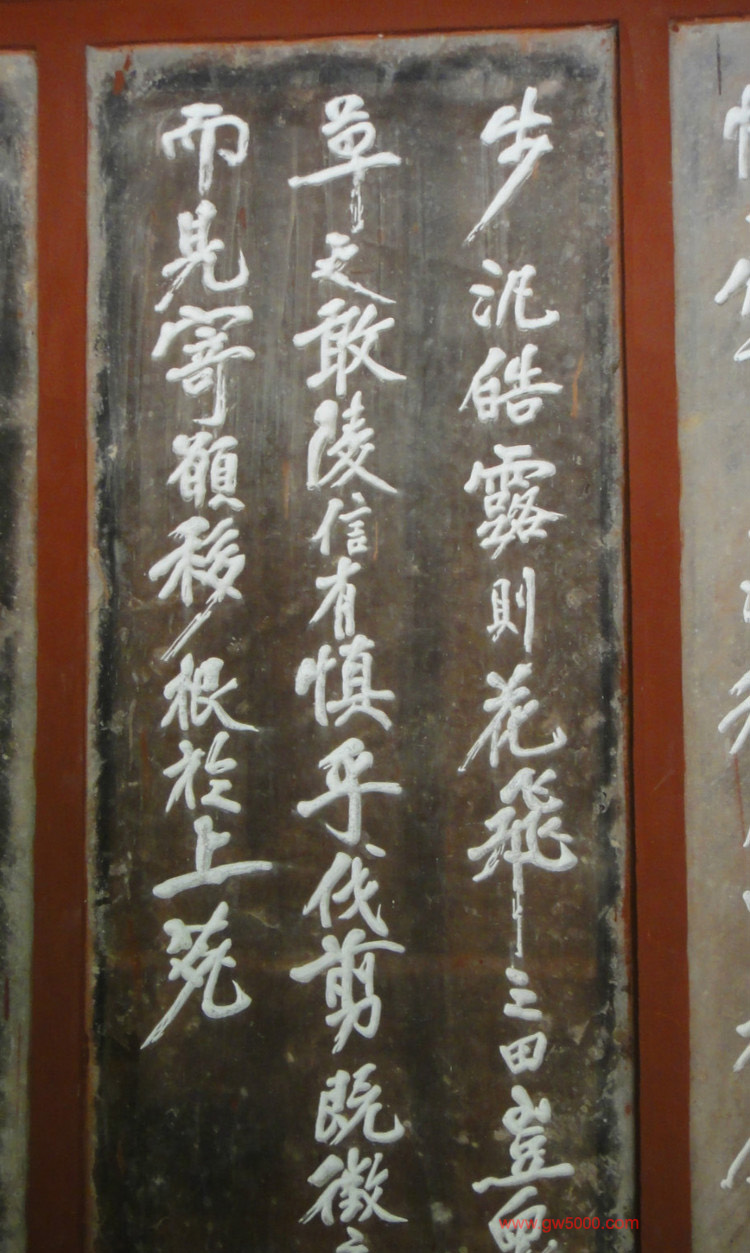 步沉皓露則花飛三田豈
草之敢陵信有慎乎伐剪既徵
而見寄願移根於上苑
www.gw5000.com